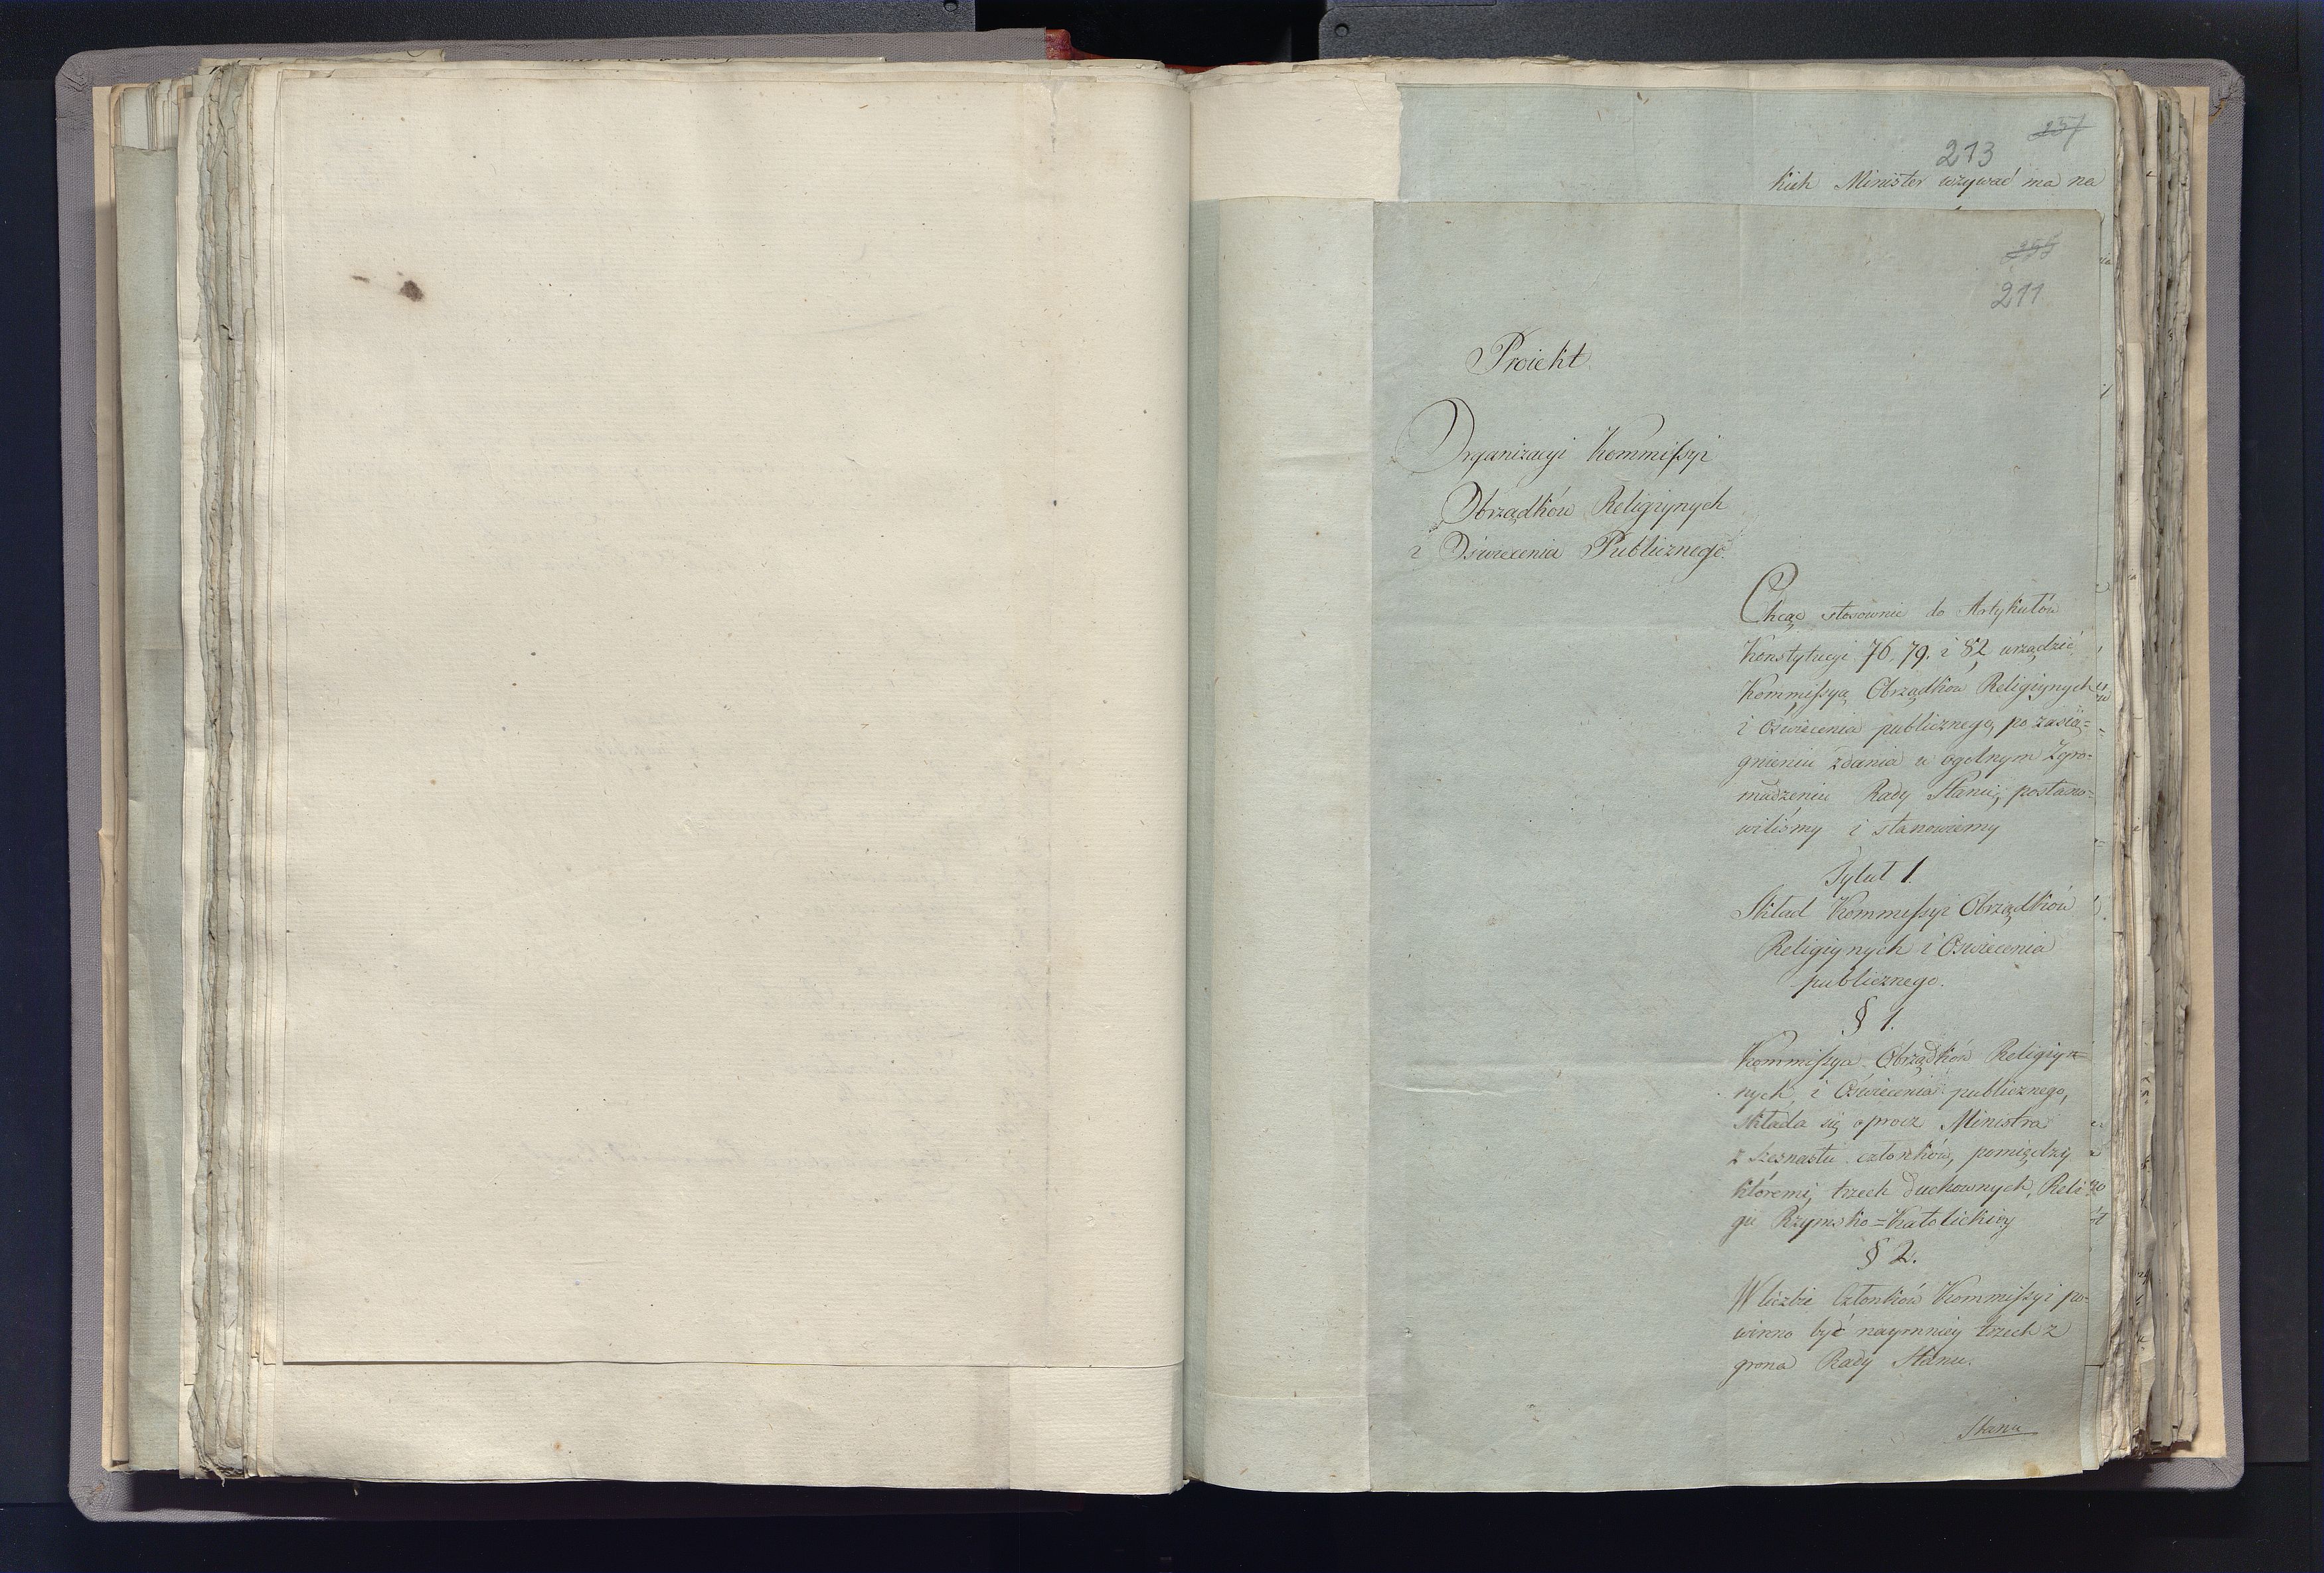 257
213
kich Minister wzywać ma na
255
211
Proiekt
Organizacyi Kommissyi
Obrządków Religiynych
i Oświecenia Publicznego.
Chcąc stosownie do Artykułów
Konstytucyi 76. 79. i 82 urządzić
Kommissyą Obrządków Religiynych
i Oświecenia publicznego, po zasią=
gnieniu zdania w ogolnym Zgro=
madzeniu Rady Stanu, postano=
wiliśmy i stanowiemy
Tytuł 1.
Skład Kommissyi Obrządków
Religiynych i Oświecenia
publicznego.
§ 1.
Kommissya Obrządków Religiy=
nych, i Oświecenia publicznego,
składa się oprocz Ministra
z szesnastu członków, pomiędzy
któremi, trzech Duchownych, Reli
gii Rzymsko=Katolickiey
§ 2.
W liczbie Członków Kommissyi po=
winno być naymniey trzech z
grona Rady Stanu.
Stanu